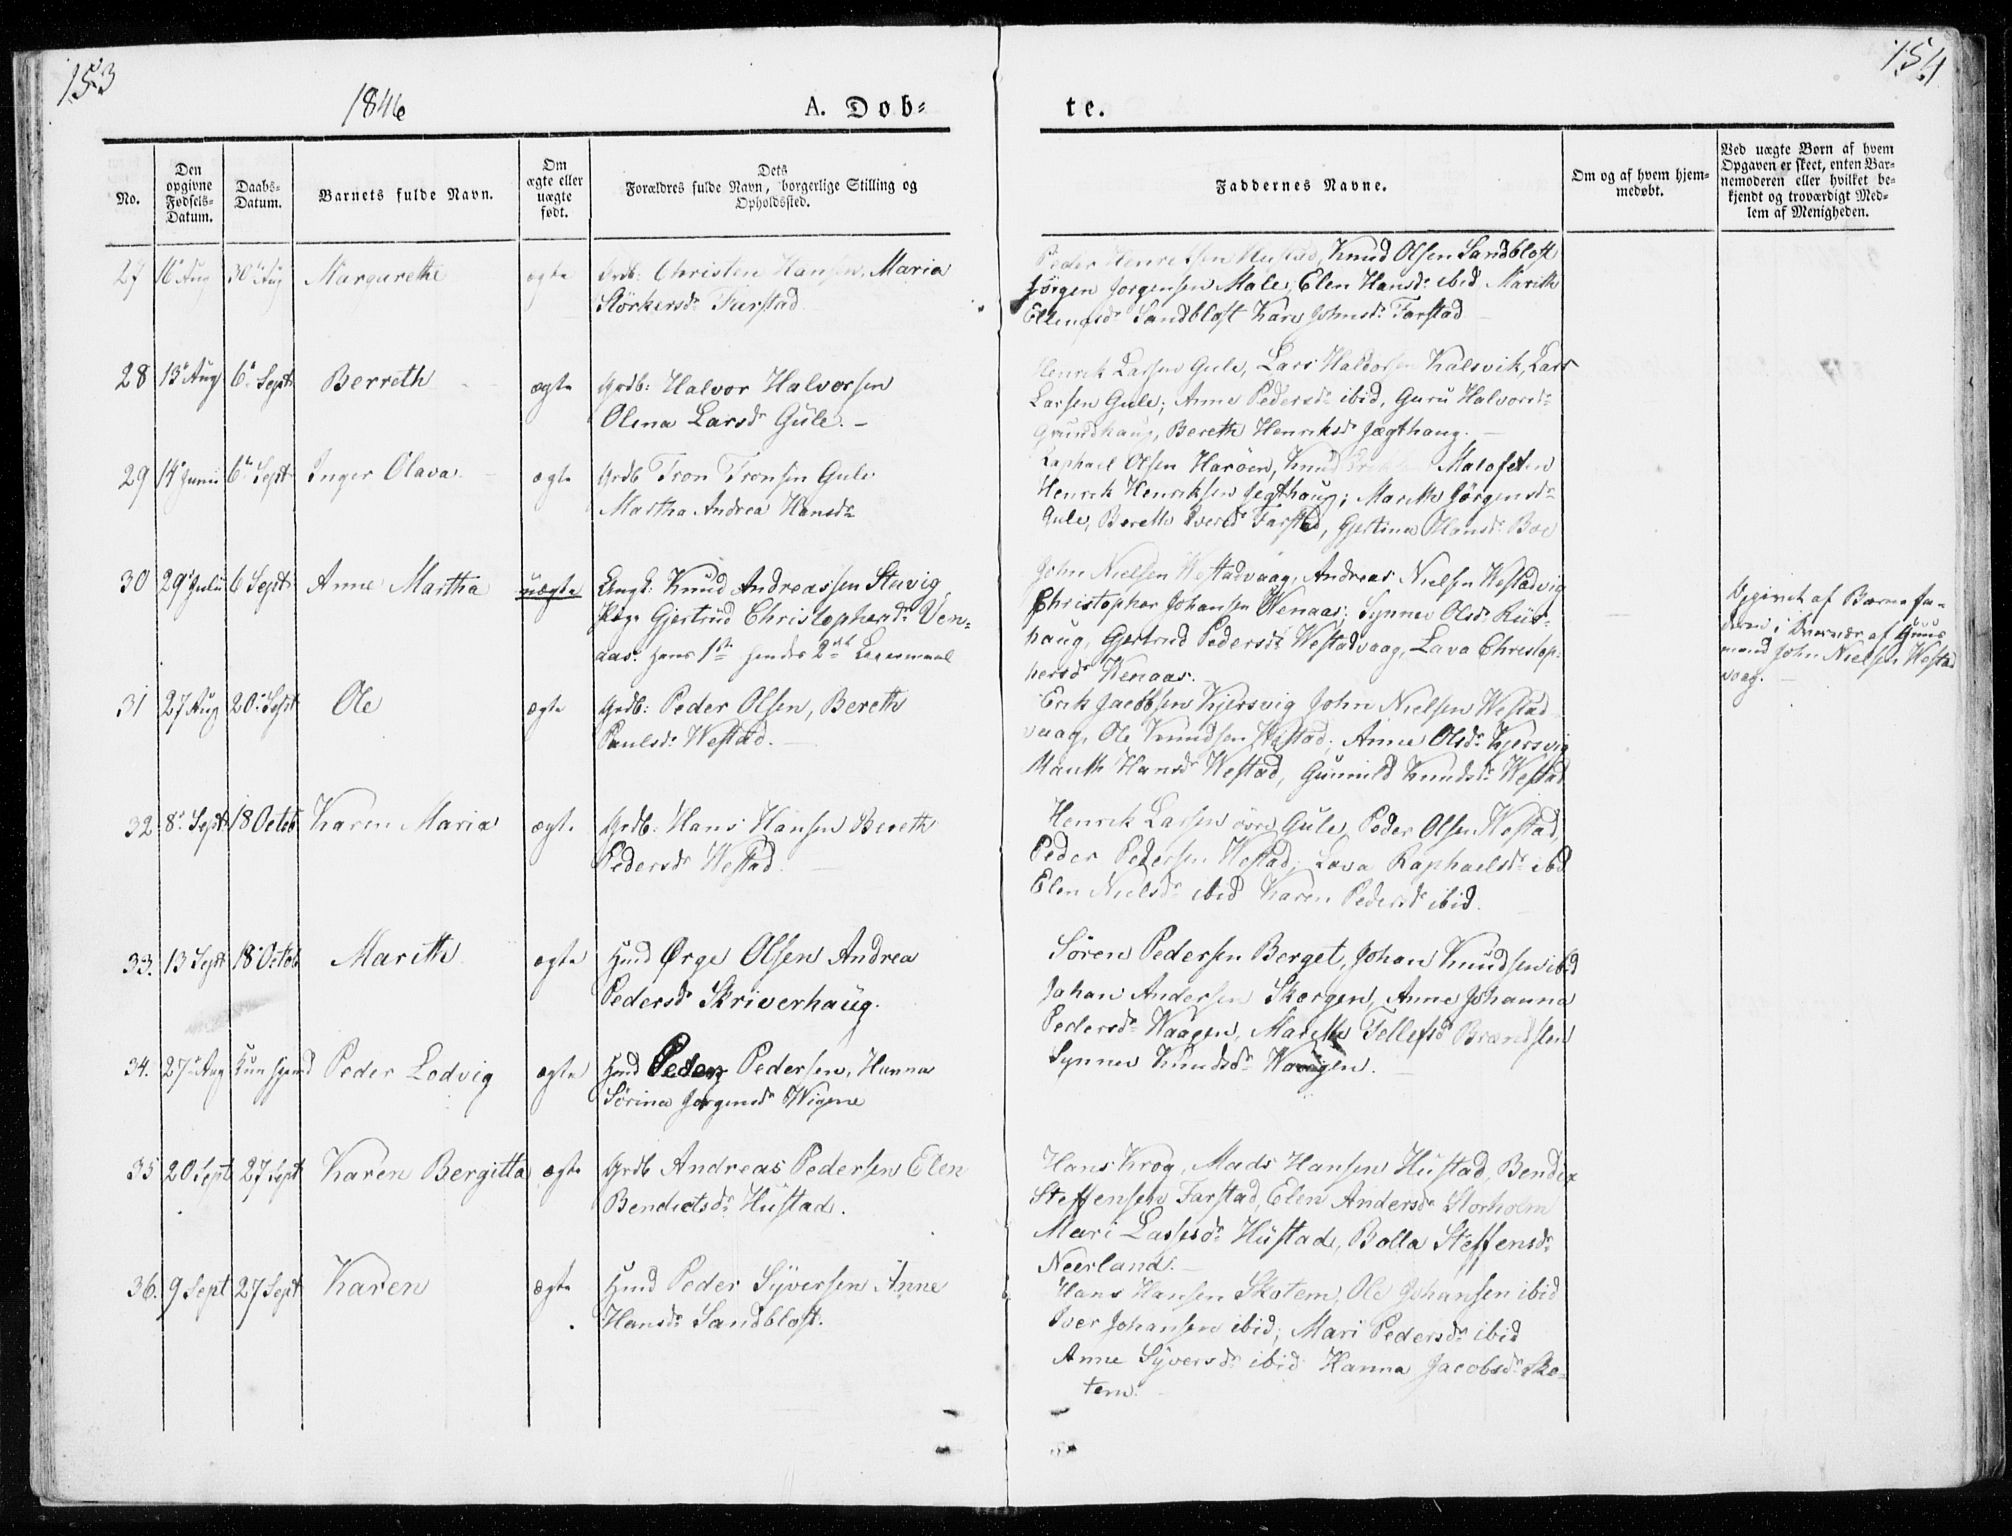 153
154
1846
A. Døb-
te.
No.
Den opgivne Fødsels-Datum.
Daabs-Datum.
Barnets fulde Navn.
Om ægte eller uægte født.
Dets Forældres fulde Navn, borgerlige Stilling og Opholdssted.
Faddernes Navne.
Om og af hvem hjem-medøbt.
Ved uægte Børn af hvem Opgaven er skeet, enten Bar-nemoderen eller hvilket be-kjendt og troværdigt Med-lem af Menigheden.
27 16 Aug 30 Aug Margarethe ægte Grdb: Christen Hansen, Maria
Störkersdr Farstad
Peder Henriksen Hustad, Knud Olsen Sandblost
Jörgen Jorgensen Male, Elen Hansdr ibid Marith
Sandblost Kari Johnsdr Farstad
28 13 Aug 6 Sept Berreth ægte Grdb: Halvor Halvorsen
Olina Larsdr Gule. -
Henrik Larsen Gule, Lars Haldorsen Kalsvik, Lars
Larsen Gule; Anne Pedersdr ibid, Guru Halvorsdr
Grundhaug, Bereth Henriksdr Jægthaug. -
29 14 Junii 6 Sept Inger Olava ægte Grdb Tron Tronsen Gule
Martha Andrea Hansdr
Raphael Olsen Haröen, Knud Malofeten
Henrik Henriksen Jegthaug; Marith Jörgensdr
Gule, Bereth Iversdr Farstad, Gjertina Hansdr Boe
30 29 Julii 6 Sept Anne Martha uægte Ungk: Knud Andreassen Stavig
Pige Gjertrud Christophersdr Ven-
aas. Hans 1ste hendes 2det Leiermaal
John Nielsen Westadvaag, Andreas Nielsen Westadvig
Christopher Johansen Wenaas; Synnev Olsdr Rüs-
haug, Gjertrud Pedersdr Westadvaag, Lava Christop-
hersdr Wenaas.
Opgivet af Barnefa-
deren i Nærvær af Huus
mand John Nielsen Westad
vaag. -
31 27 Aug 20 Sept Ole ægte Grdb: Peder Olsen, Bereth
Paulsdr Westad. -
Erik Jacobsen Kjersvig John Nielsen Westad
vaag, Ole Knudsen Westad; Anne Olsdr Kjersvig
Marith Hansdr Westad, Gunnild Knudsdr Westad
32 8 Sept 18 Octob Karen Maria ægte Grdb: Hans Hansen Bereth
Pedersdr Westad. -
Henrik Larsen övre Gule, Peder Olsen Westad,
Peder Pedersen Westad; Lava Raphaelsdr ibid
Elen Nielsdr ibid Karen Pedersdr ibid.
33. 13 Sept 18 Octob Marith ægte Hmd Ørge Olsen Andrea
Pedersdr Skriverhaug.
Sören Pedersen Berget, Johan Knudsen ibid
Johan Andersen Skorgen, Anne Johanna
Pedersdr Waagen, Marith Tellefsdr Brandsten
Synnev Knudsdr Waagen.
34. 27 Aug Peder Lodvig ægte Hmd Peder Pedersen, Hanna
Sörina Jørgensdr Wigene
35 20 Sept 27 Sept Karen Bergitta ægte Grdb Andreas Pedersen Elen
Bendictsdr Hustad.
Hans Krog, Mads Hansen Hustad, Bendix
Steffensen Farstad, Elen Andersdr Storholm
Mari Lassesdr Hustad, Bolla Steffensdr
Neerland. -
36. 9 Sept 27 Sept Karen ægte Hmd Peder Syversen Anne
Hansdr Sandblost.
Hans Hansen Skotem, Ole Johansen ibid
Iver Johansen ibid; Mari Pedersdr ibid
Anne Syversdr ibid Hanna Jacobsdr Sko-
tem.